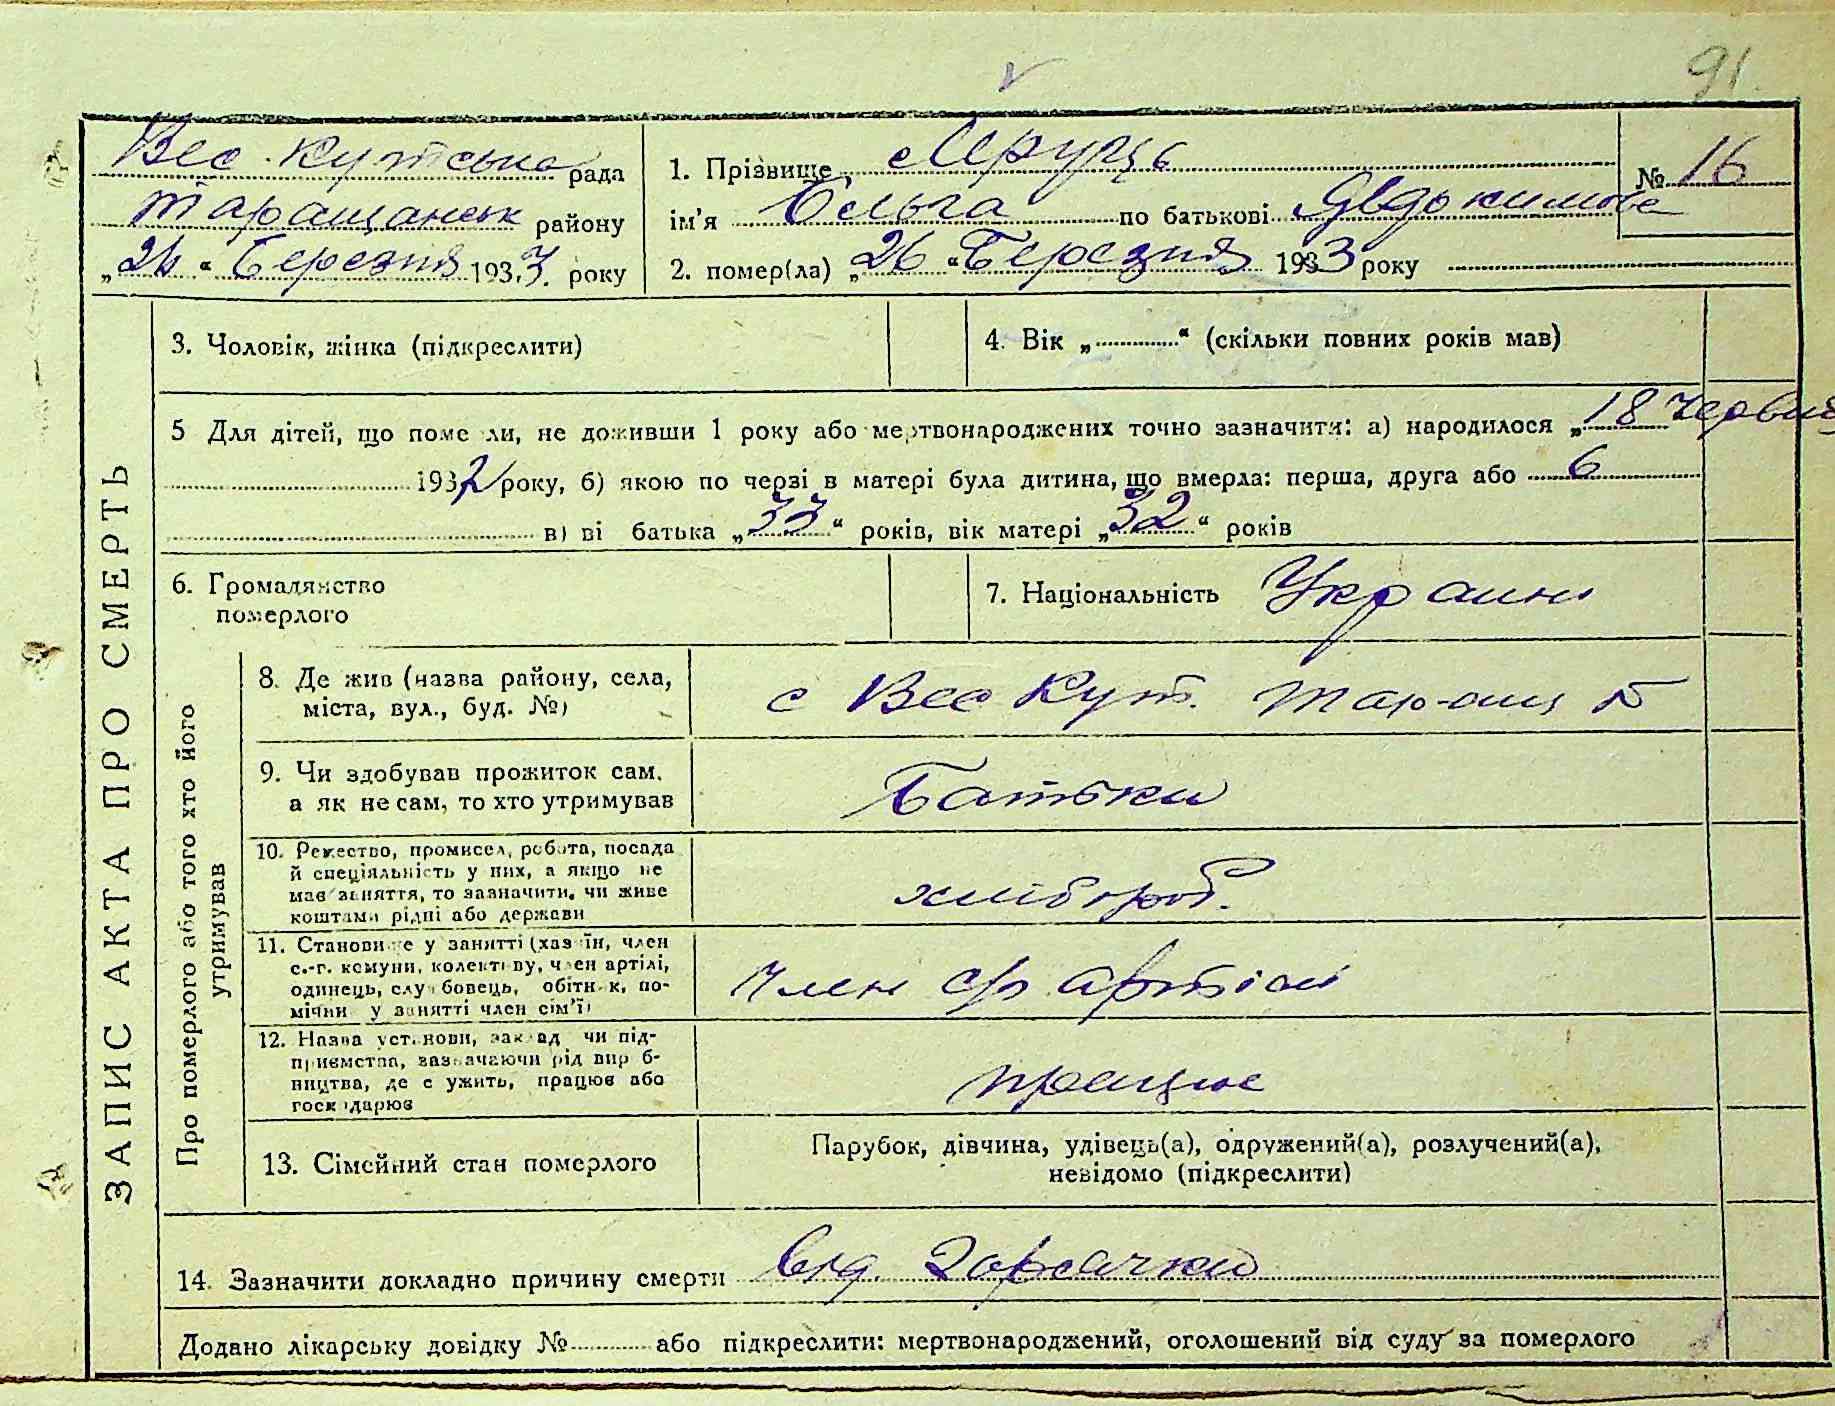 91
Вес. Кутська рада
Таращанськ району
„26“ Березня 1933 року
1. Прізвище
№ 16
ім'я Ольга по батькові Явдокимова
2. помер(ла) „26“ Березня 1933 року
ЗАПИС АКТА ПРО СМЕРТЬ
3. Чоловік, жінка (підкреслити)
4. Вік „ “ (скільки повних років мав)
5 Для дітей, що поме ли, не доживши 1 року або мертвонароджених точно зазначити: а) народилося „18 Червня
1932 року, б) якою по черзі в матері була дитина, що вмерла: перша, друга або 6
в) ві батька „33“ років, вік матері „32“ років
6. Громадянство
померлого
7. Національність Украин
Про померлого або того хто його
утримував
8. Де жив (назва району, села,
міста, вул., буд. №)
с Вес Кут. Таращ
9. Чи здобував прожиток сам,
а як не сам, то хто утримував
Батьки
10. Ремество, промисел, робота, посада
й спеціяльність у них, а якщо не
мав заняття, то зазначити, чи живе
коштами рідні або держави
хлібороб.
11. Станови е у занятті (хазяїн, член
с.-г. комуни, колективу, член артілі,
одинець, слу бовець, обітн к, по-
мічни у занятті член сім'ї)
Член с/г артіли
12. Назва установи, заклад чи під-
приємства, зазначаючи рід вир б-
ництва, де с ужить, працює або
госп дарює
працює
13. Сімейний стан померлого
Парубок, дівчина, удівець(а), одружений(а), розлучений(а),
невідомо (підкреслити)
14. Зазначити докладно причину смерти від. Горячки
Додано лікарську довідку № або підкреслити: мертвонароджений, оголошений від суду за померлого